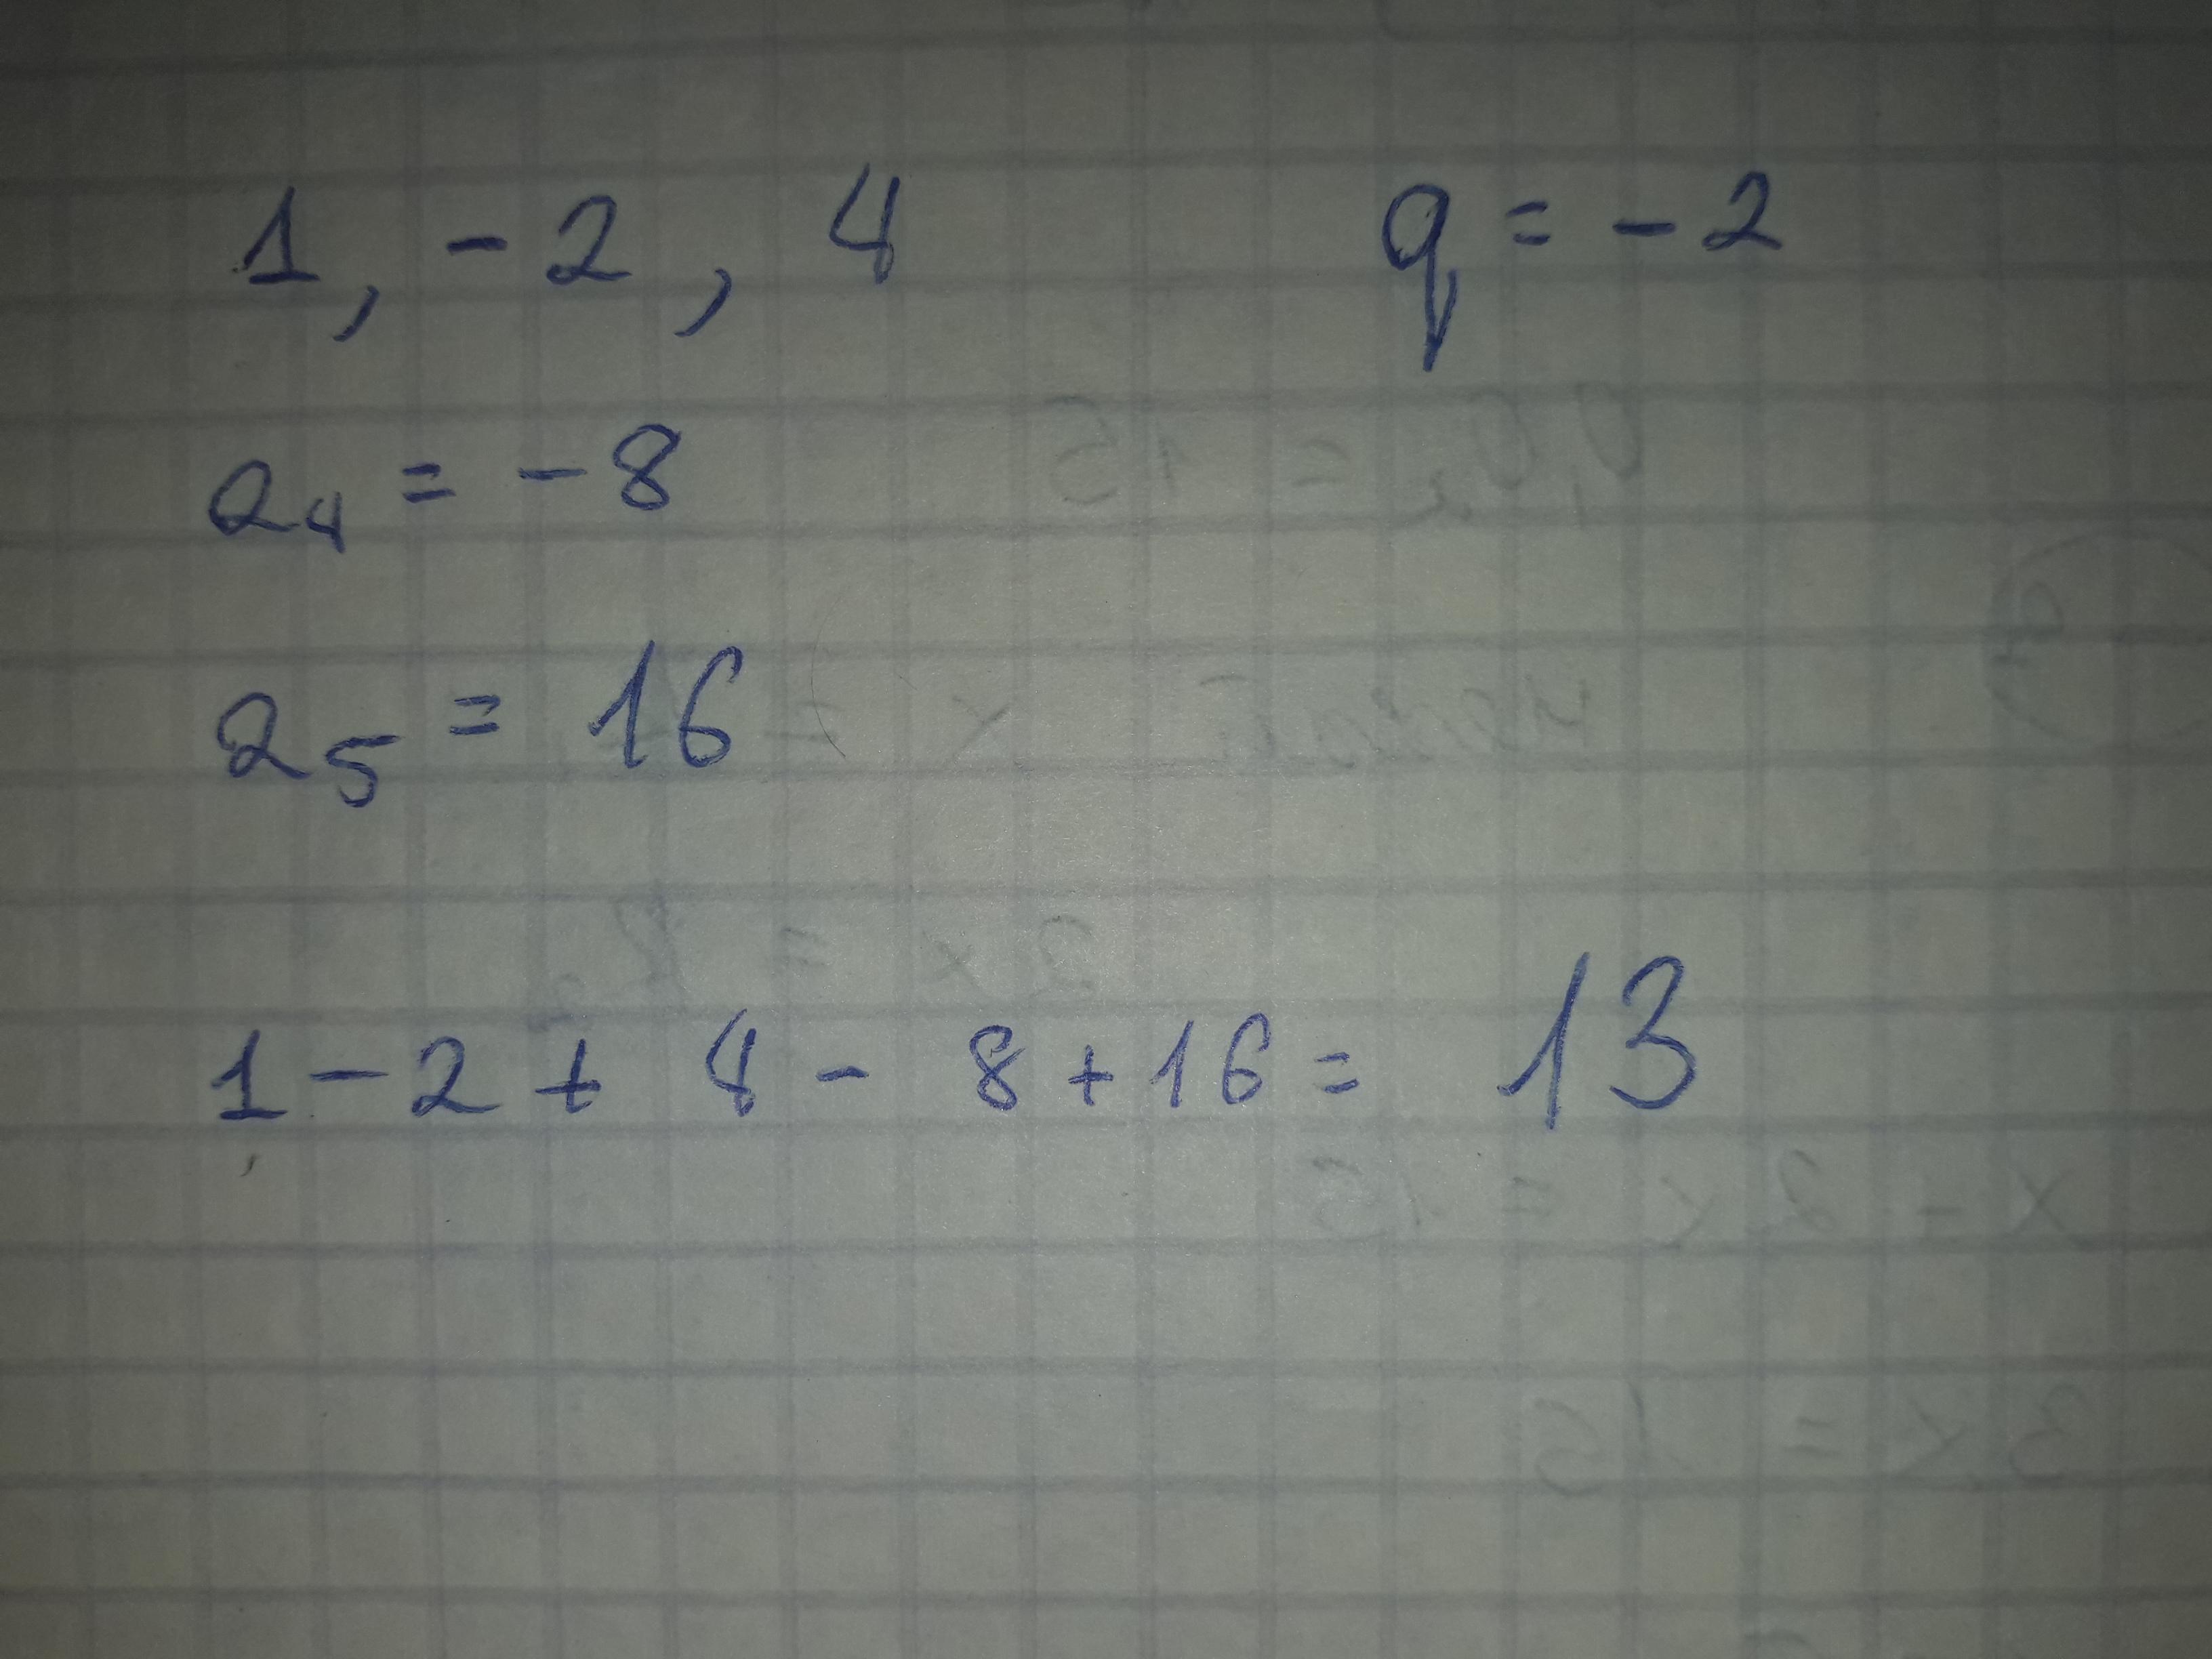 1, -2, 4 q = -2
a4 = -8
a5 = 16
1 - 2 + 4 - 8 + 16 = 13